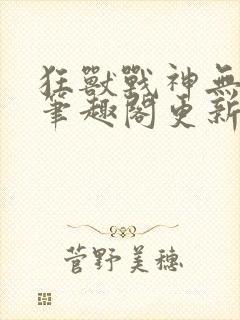 狂獸戰神無
筆趣閣更新
菅野美穗